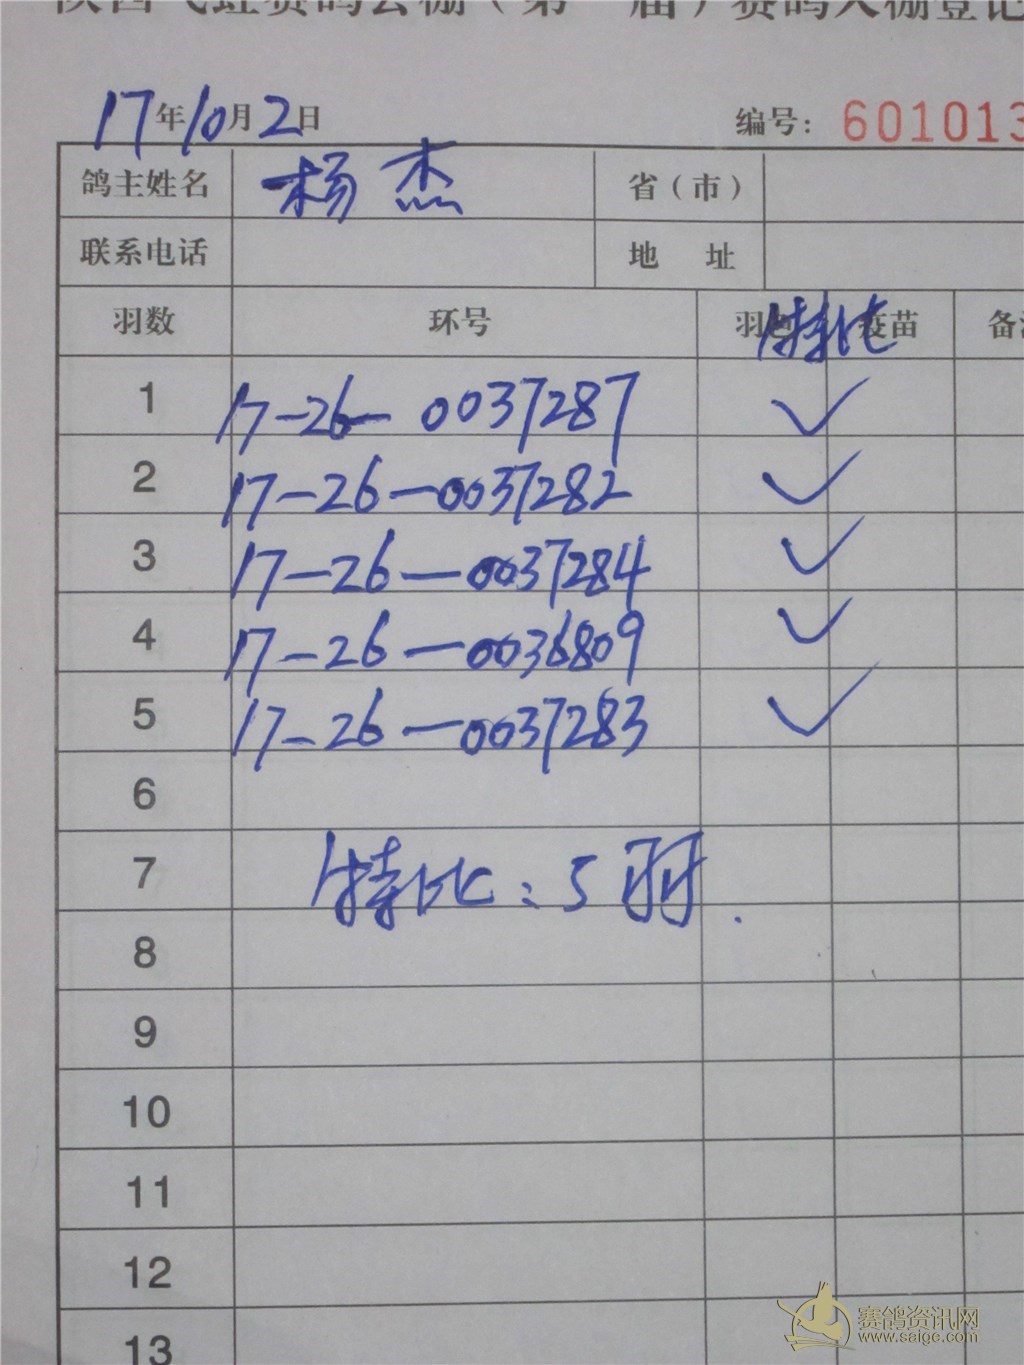 赛鸽公棚（第一届）赛鸽入棚登记
17年10月2日 编号：601013
鸽主姓名 杨杰 省（市）
联系电话 地址
羽数 环号 羽 特比 疫苗 备
1 17-26-0037287 ✓
2 17-26-0037282 ✓
3 17-26-0037284 ✓
4 17-26-0036809 ✓
5 17-26-0037283 ✓
6
7 特比：5羽.
8
9
10
11
12
13
赛鸽资讯网
www.saige.com